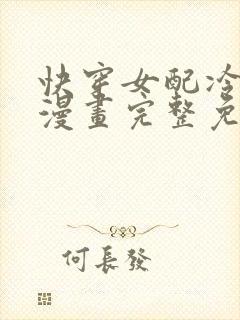 快穿女配冷
漫畫完整免
何長發